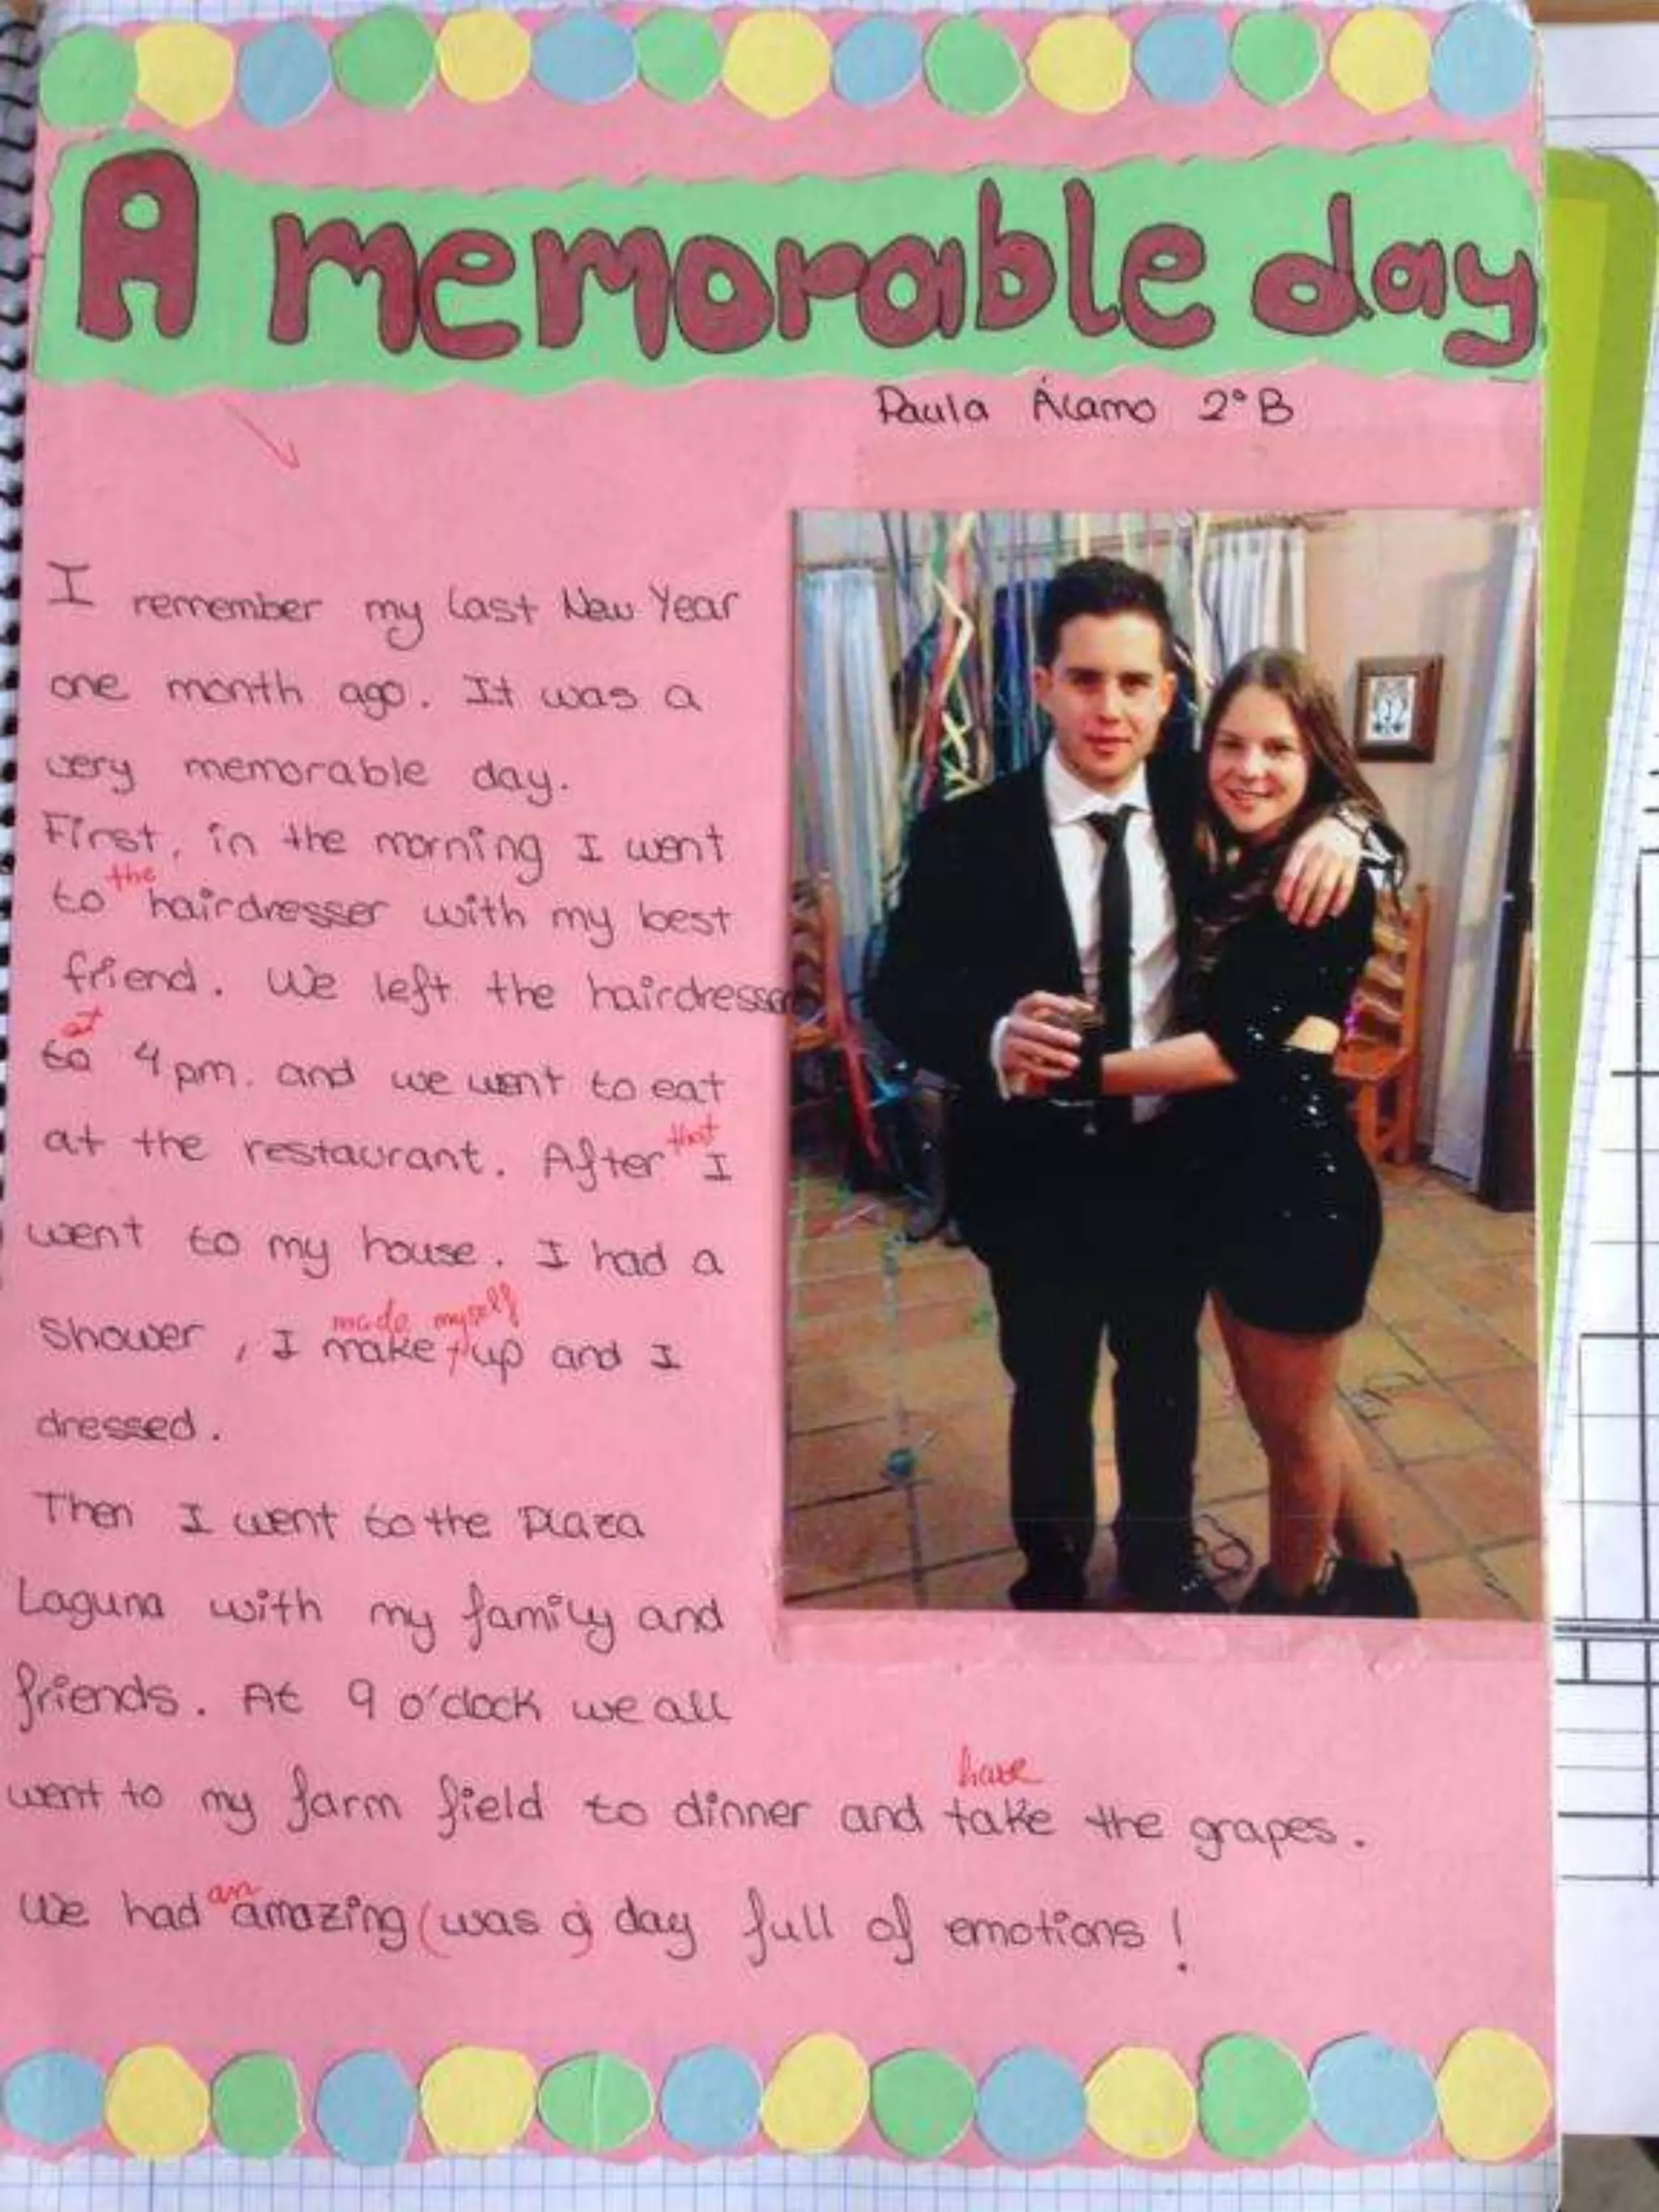 A memorable day
Paula Álamo 2º B
I remember my last New Year
one month ago. It was a
very memorable day.
First, in the morning I went
the
to hairdresser with my best
friend. We left the hairdresser
at
to 4 pm. and we went to eat
that
at the restaurant. After I
went to my house. I had a
made myself
Shower, I make up and I
dressed.
Then I went to the Plaza
Laguna with my family and
friends. At 9 o'clock we all
have
went to my farm field to dinner and take the grapes.
an
We had amazing (was a) day full of emotions!